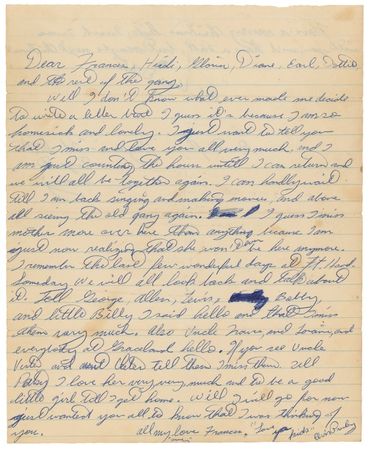 Dear Frances, Heidi, Gloria, Diane, Earl, Dottie
and the rest of the gang,
Well I don't know what ever made me decide
to write a letter but I guess it's because I am so
homesick and lonely. I just want to tell you
that I miss and love you all very much and I
am just counting the hours untill I can return and
we will all be together again. I can hardly wait
till I am back singing and making movies, and above
all seeing the old gang again. I guess I miss
mother more over here than anything because I am
just now realizing that she won't be here anymore.
I remember the last few wonderful days at Ft. Hood.
Someday we will all look back and talk about
it. Tell George, Allen, Lewis, Bobby
and little Billy I said hello and that I miss
them very much. Also Uncle Travis, and Lorain, and
everybody at Graceland hello. If you see Uncle
Vester and aunt tell them I miss them. Tell
Patsy I love her very very much and to be a good
little girl till I get home. Well I will go for now
just wanted you all to know that I was thinking of
you. all my love Frances. "Love ya
Elvis Presley